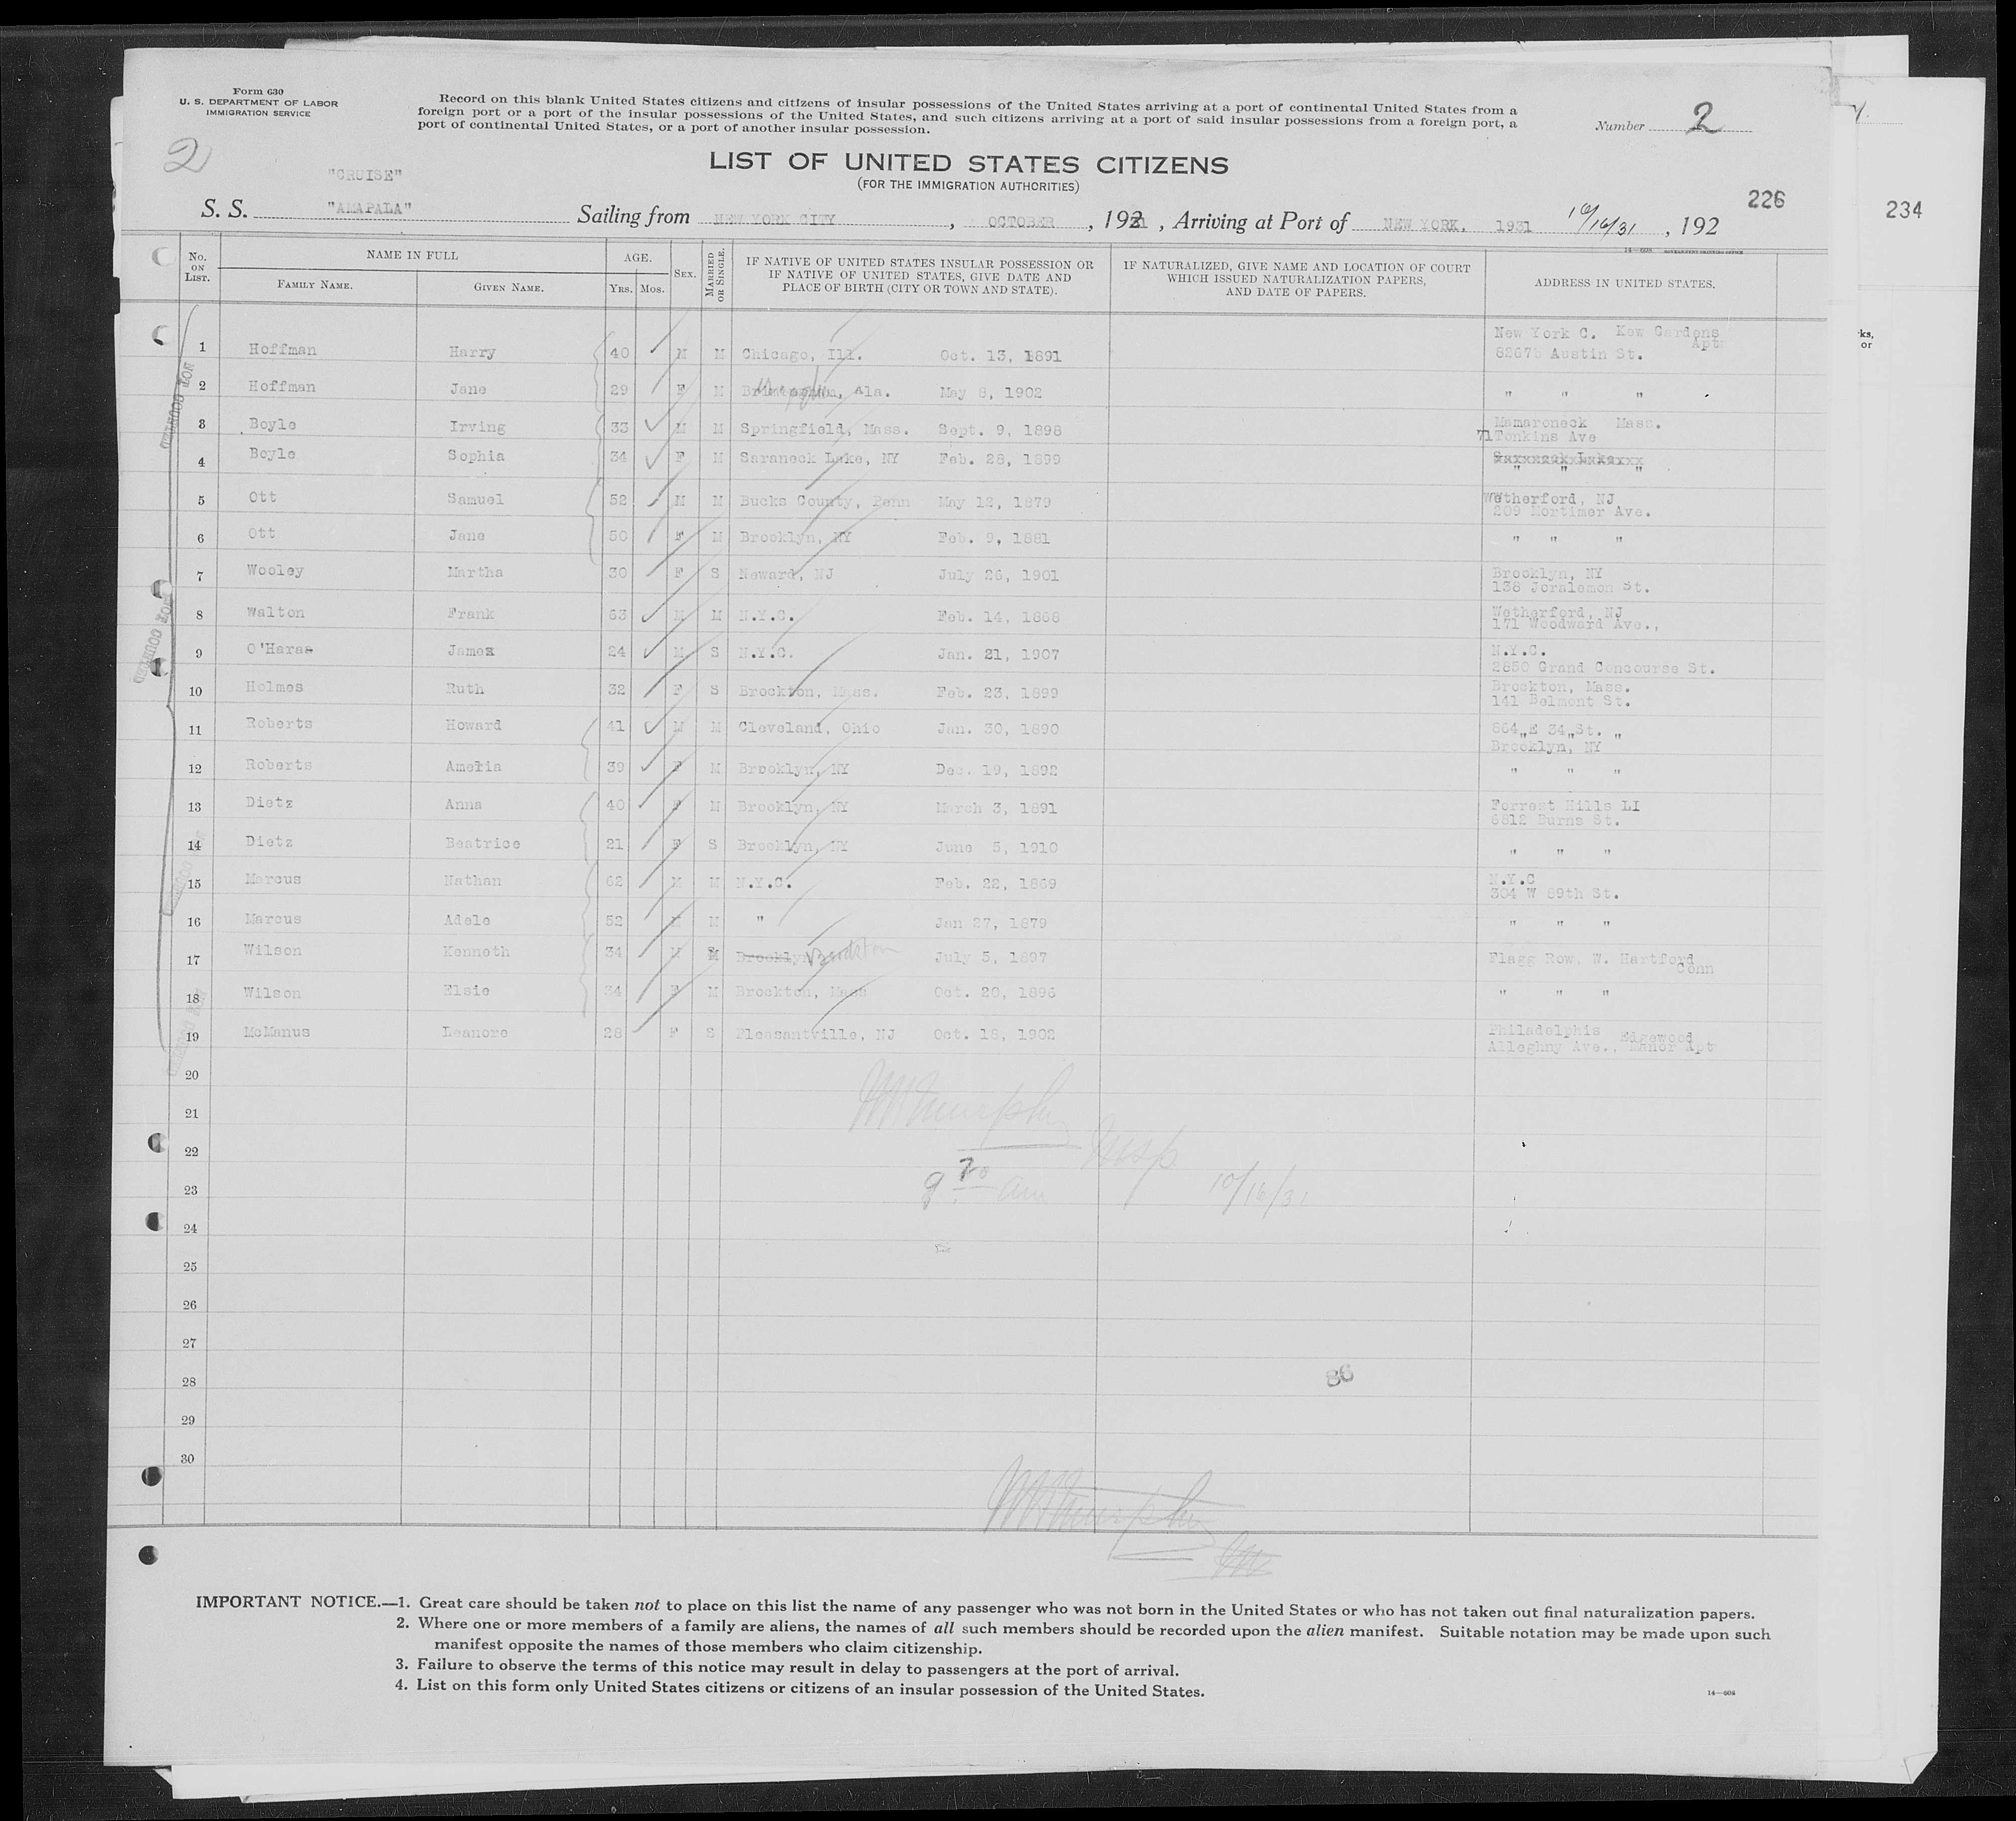 Form 630
U. S. DEPARTMENT OF LABOR
IMMIGRATION SERVICE
Record on this blank United States citizens and citizens of insular possessions of the United States arriving at a port of continental United States from a
foreign port or a port of the insular possessions of the United States, and such citizens arriving at a port of said insular possessions from a foreign port, a
port of continental United States, or a port of another insular possession.
Number 2
2
LIST OF UNITED STATES CITIZENS
(FOR THE IMMIGRATION AUTHORITIES)
"CRUISE"
226
234
S. S. "AMAPALA" Sailing from NEW YORK CITY, OCTOBER, 1931, Arriving at Port of NEW YORK. 1931 10/16/31, 192
No. ON LIST.
NAME IN FULL
FAMILY NAME. GIVEN NAME.
AGE.
YRS. MOS.
SEX.
MARRIED OR SINGLE.
IF NATIVE OF UNITED STATES INSULAR POSSESSION OR
IF NATIVE OF UNITED STATES, GIVE DATE AND
PLACE OF BIRTH (CITY OR TOWN AND STATE).
IF NATURALIZED, GIVE NAME AND LOCATION OF COURT
WHICH ISSUED NATURALIZATION PAPERS,
AND DATE OF PAPERS.
ADDRESS IN UNITED STATES.
1 Hoffman Harry 40 M M Chicago, Ill. Oct. 13, 1891 New York C. Kew Gardens Apt
8267 Austin St.
2 Hoffman Jane 29 F M Ala. May 8, 1902 " " "
3 Boyle Irving 33 M M Springfield, Mass. Sept. 9, 1898 Mamaroneck Mass.
71 Tonkins Ave
4 Boyle Sophia 34 F M Saraneck Lake, NY Feb. 28, 1899 " " "
5 Ott Samuel 52 M M Bucks County, Penn May 12, 1879 Wutherford, NJ
209 Mortimer Ave.
6 Ott Jane 50 F M Brooklyn, NY Feb. 9, 1881 " " "
7 Wooley Martha 30 F S Neward, NJ July 26, 1901 Brooklyn, NY
138 Joralemon St.
8 Walton Frank 63 M M N.Y.C. Feb. 14, 1868 Wetherford, NJ
171 Woodward Ave.,
9 O'Hara James 24 M S N.Y.C. Jan. 21, 1907 N.Y.C.
2850 Grand Concourse St.
10 Holmes Ruth 32 F S Brockton, Mass. Feb. 23, 1899 Brockton, Mass.
141 Belmont St.
11 Roberts Howard 41 M M Cleveland, Ohio Jan. 30, 1890 864 E 34 St.
Brooklyn, NY
12 Roberts Amelia 39 F M Brooklyn, NY Dec. 19, 1892 " " "
13 Dietz Anna 40 F M Brooklyn, NY March 3, 1891 Forrest Hills LI
6812 Burns St.
14 Dietz Beatrice 21 F S Brooklyn, NY June 5, 1910 " " "
15 Marcus Nathan 62 M M N.Y.C. Feb. 22, 1869 N.Y.C
304 W 89th St.
16 Marcus Adele 52 M " Jan 27, 1879 " " "
17 Wilson Kenneth 34 M M Brooklyn Brockton July 5, 1897 Flagg Row, W. Hartford
Conn
18 Wilson Elsie 34 F M Brockton, Mass Oct. 20, 1896 " " "
19 McManus Leanore 28 F S Pleasantville, NJ Oct. 18, 1902 Philadelphis Edgewood
Alleghny Ave., Manor Apt
20
21
22
23
24
25
26
27
28
29
30
Insp
9 20 am 10/16/31
86
IMPORTANT NOTICE.—1. Great care should be taken not to place on this list the name of any passenger who was not born in the United States or who has not taken out final naturalization papers.
2. Where one or more members of a family are aliens, the names of all such members should be recorded upon the alien manifest. Suitable notation may be made upon such
manifest opposite the names of those members who claim citizenship.
3. Failure to observe the terms of this notice may result in delay to passengers at the port of arrival.
4. List on this form only United States citizens or citizens of an insular possession of the United States.